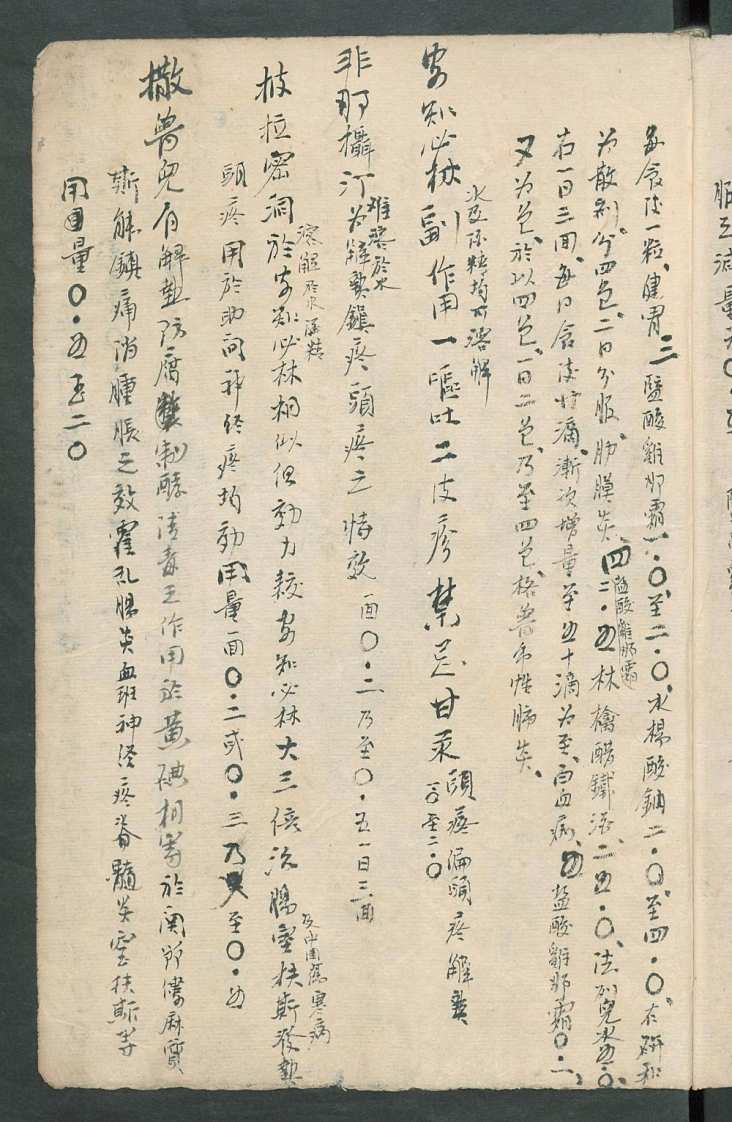 服 減量
每食后一粒、健胃、三鹽酸雞那霜一.〇、至二.〇、水楊酸鈉二.〇至四.〇、右研和
為散劑、分四包、二日分服、肋膜炎、四鹽酸雞那霜二.五林檎醋鐵酒、二五.〇、法列兒水五.〇、
右一日三面、每日食后 滴、漸次增量至五十滴為至、白血病、五鹽酸雞那霜〇.二、
又為包、於以四包、一日二包、乃至四包、格魯布性肺炎、
安知必林副作用一嘔吐二皮疹禁忌甘汞頭疼偏頭疼解熱
水亞 均可溶解
〇至二.〇
非那攝汀為解熱鎮疼頭疼之特效一面〇.二乃至〇.五一日三面
难溶於水
披拉密洞於安知必林相似但効力較安知必林大三倍沈腸窒扶斯發熱
溶解於水酒精
及中國傷寒病
頭疼用於肋間神経疼均効用量一面〇.二或〇.三乃至〇.五
撒魯兒有解熱防腐制酵清毒主作用於黃碘相等於関節僂麻質
斯解鎮痛消腫脹之效霍乱腸炎血班神経疼脊髓炎窒扶斯等
用量〇.五至二.〇